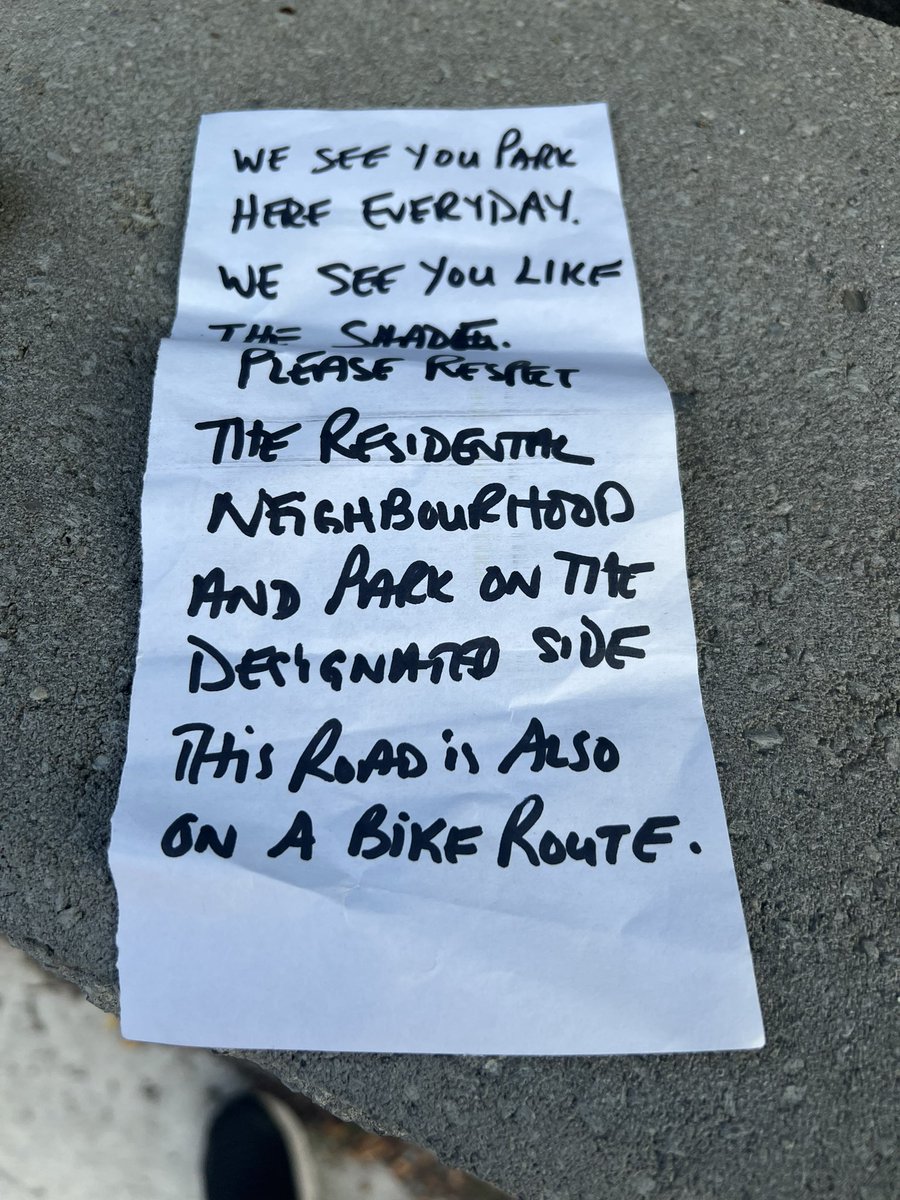 WE SEE YOU PARK
HERE EVERYDAY.
WE SEE YOU LIKE
THE SHADE.
PLEASE RESPECT
THE RESIDENTIAL
NEIGHBOURHOOD
AND PARK ON THE
DESIGNATED SIDE
THIS ROAD IS ALSO
ON A BIKE ROUTE.